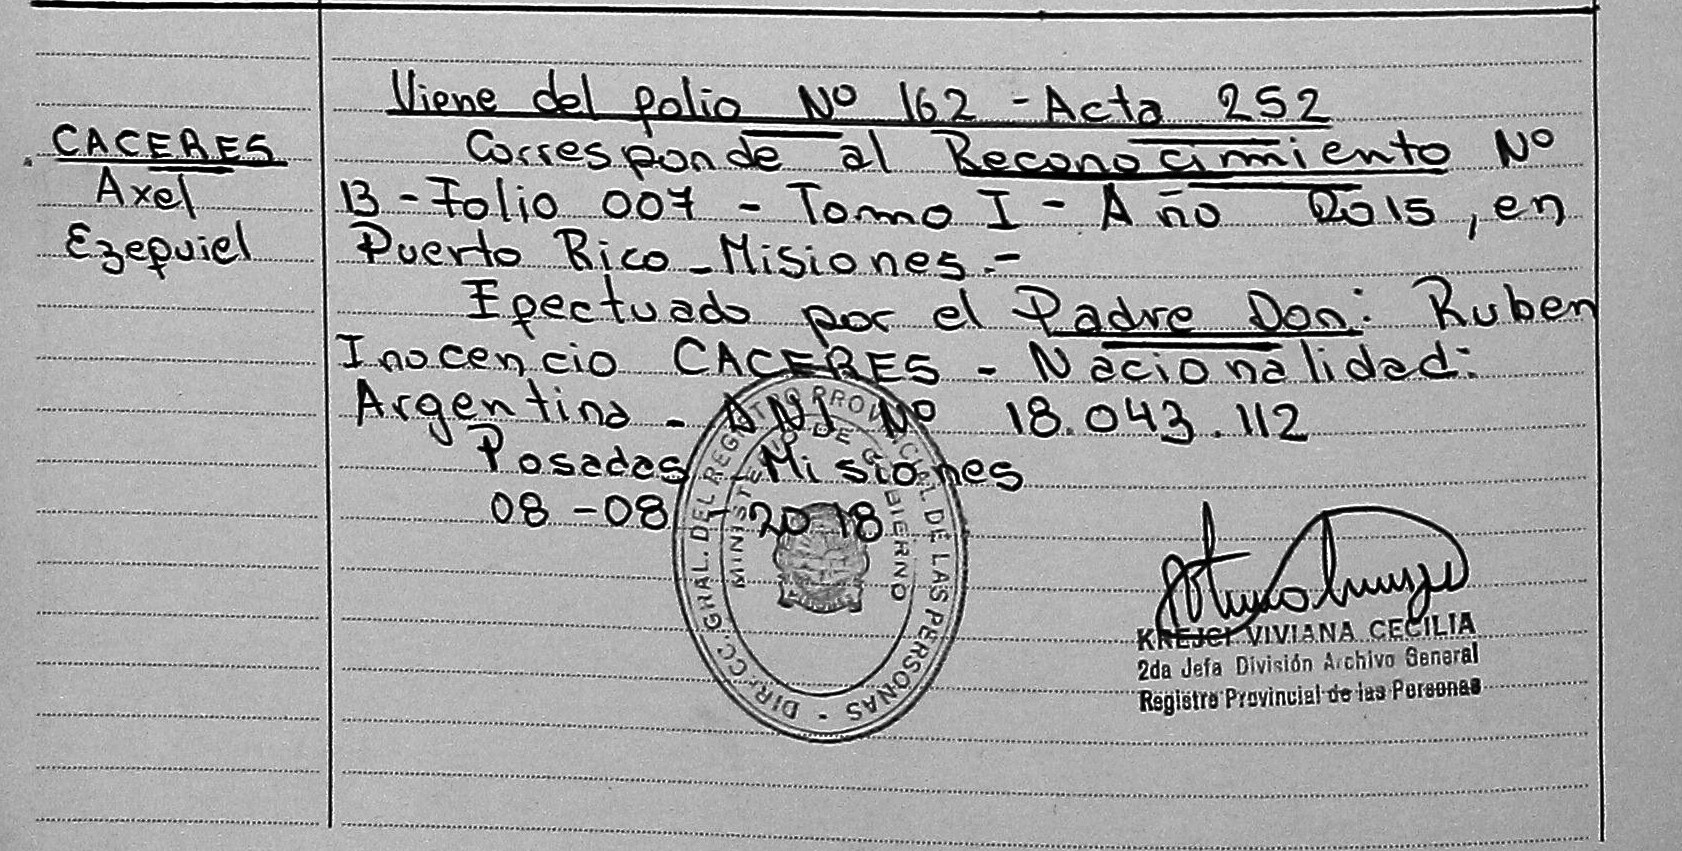 Viene del folio Nº 162 - Acta 252
CACERES
Axel
Ezequiel
Corresponde al Reconocimiento Nº
13 - Folio 007 - Tomo I - Año 2015, en
Puerto Rico - Misiones.-
Efectuado por el Padre Don: Ruben
Inocencio CACERES - Nacionalidad:
Argentina - DNI Nº 18.043.112
Posadas - Misiones
08 - 08 - 2018
DIRECC. GRAL. DEL REGISTRO PROVINCIAL DE LAS PERSONAS -
MINISTERIO DE GOBIERNO
KREJCI VIVIANA CECILIA
2da Jefa División Archivo General
Registro Provincial de las Personas